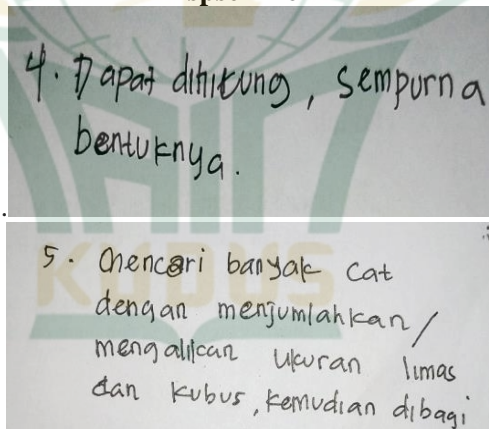 4. Dapat dihitung, sempurna
bentuknya.
.
5. Mencari banyak cat
dengan menjumlahkan/
mengalikan ukuran limas
dan kubus, kemudian dibagi
KUDUS